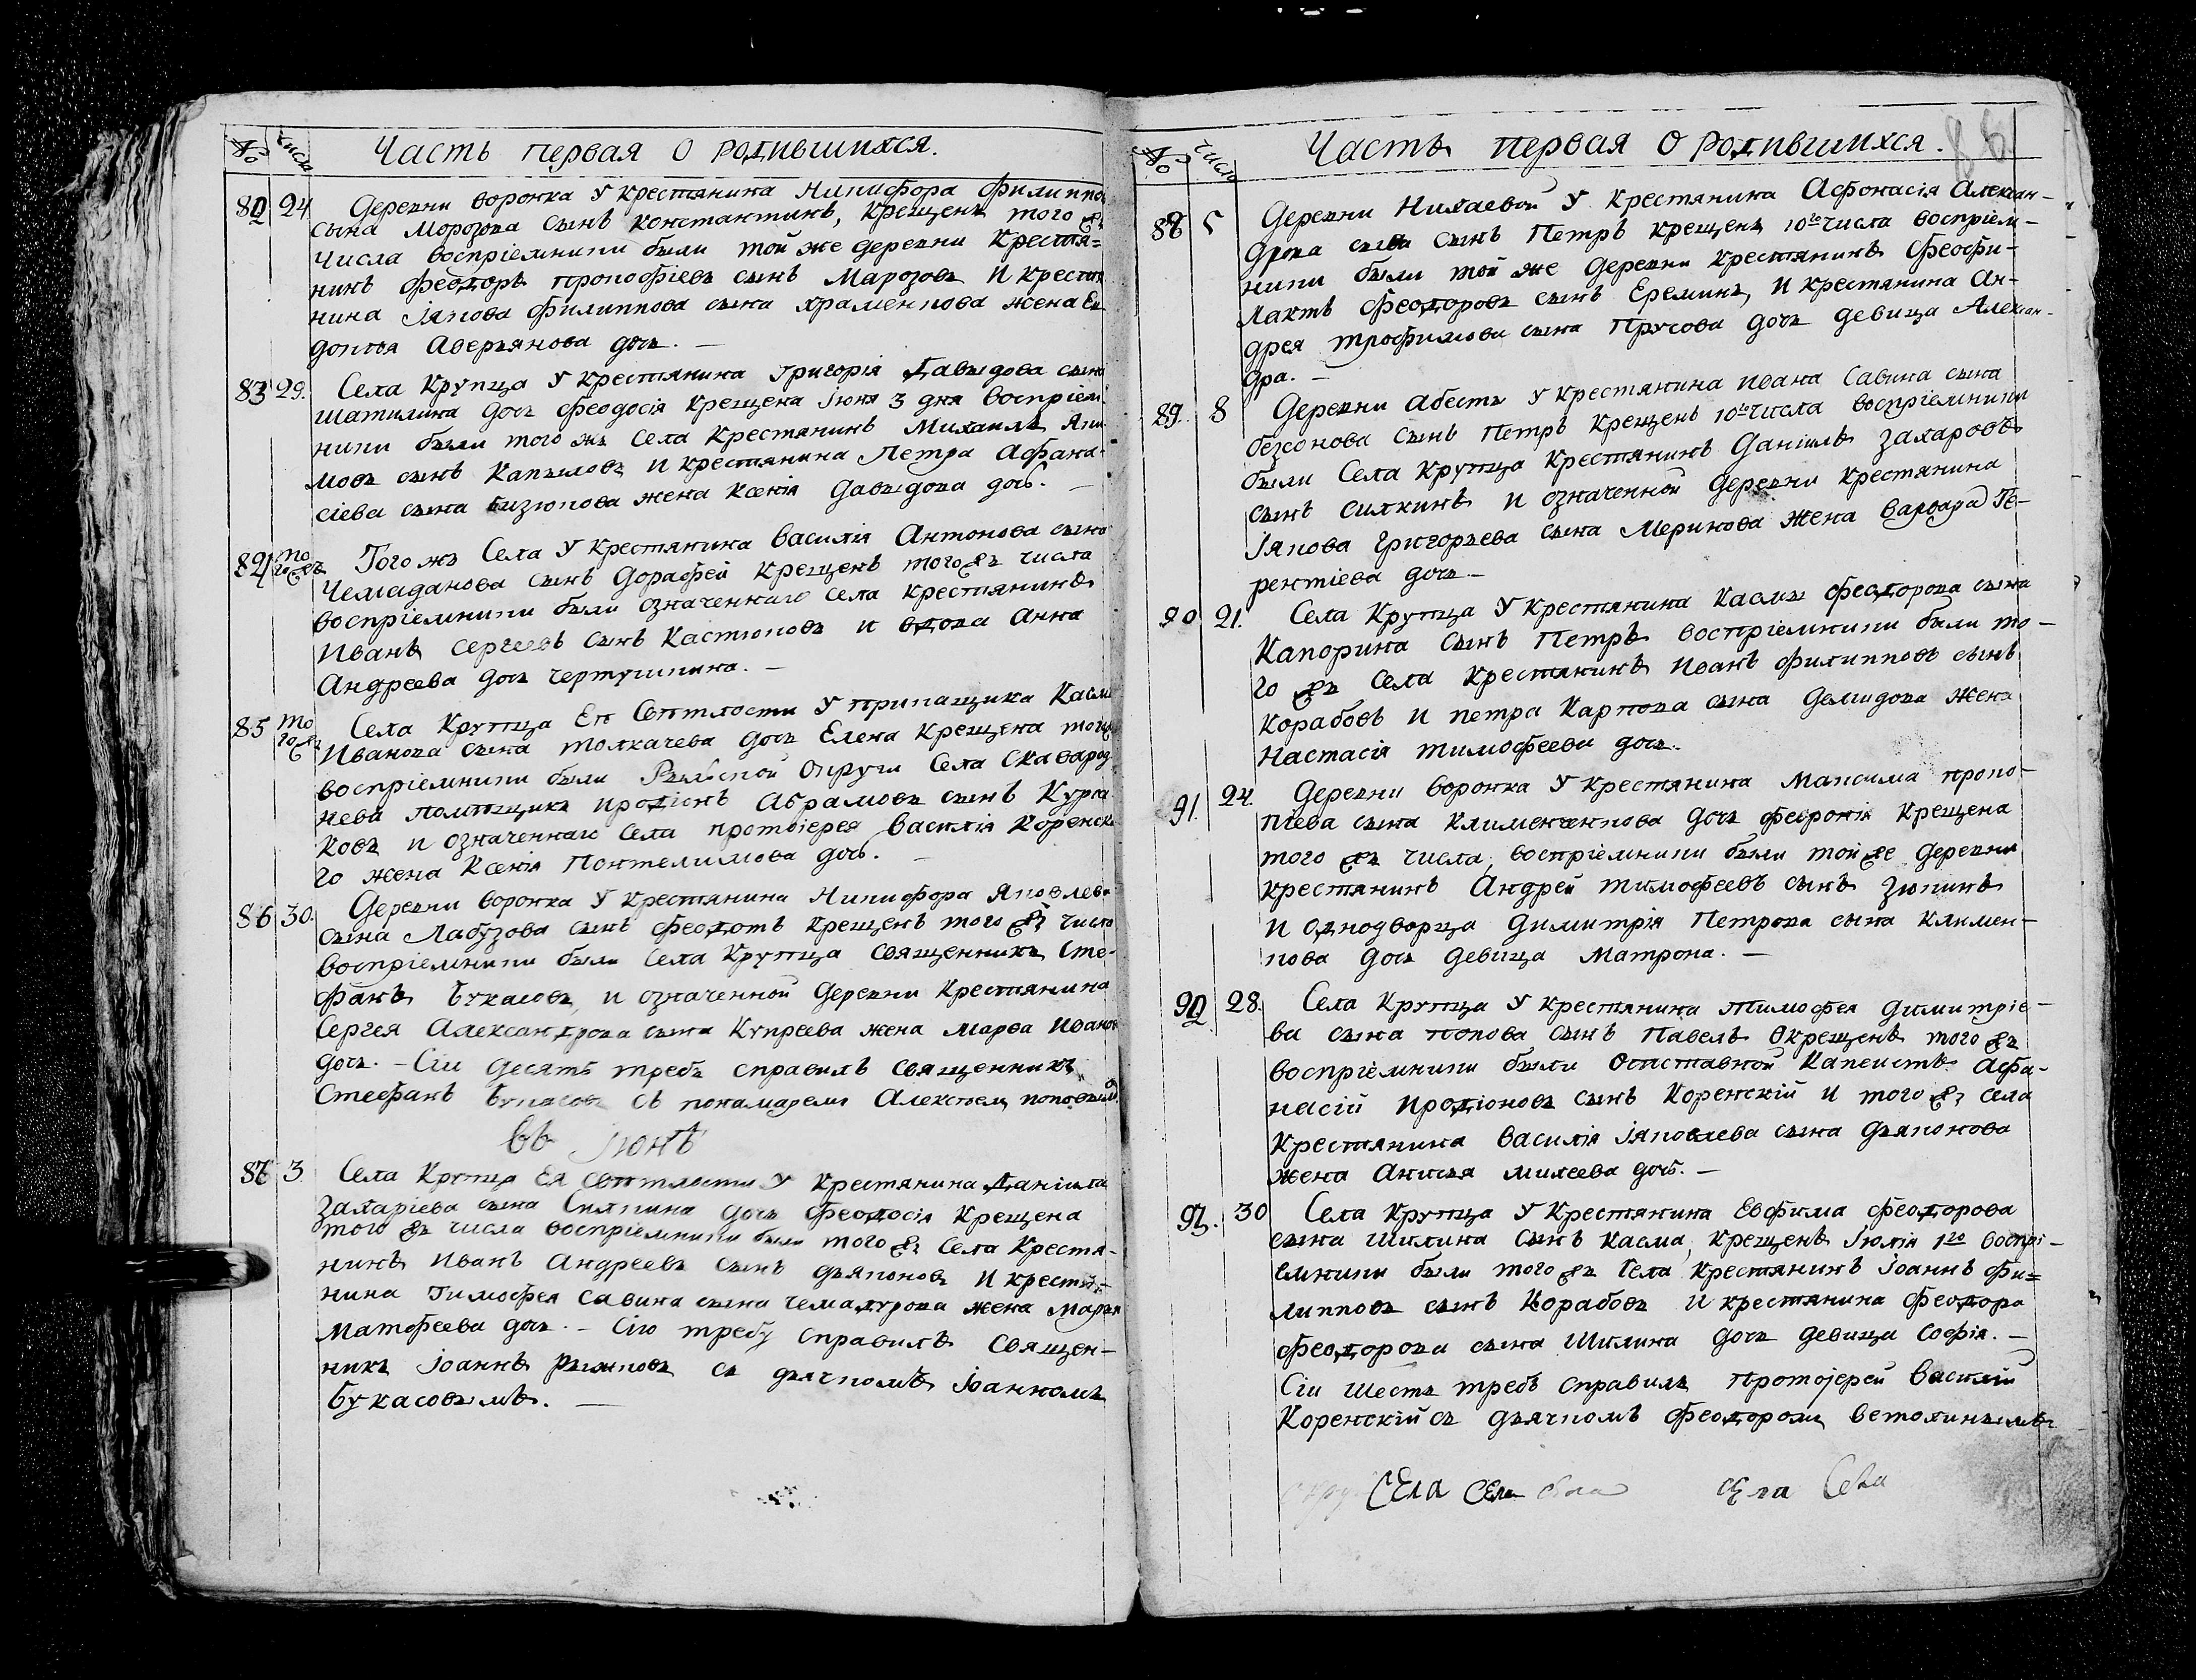 № числа Часть первая О родившихся.
82 24 Деревни воронка У крестянина Никифора филиппо
сына Морозова сынъ константинъ, крещенъ того жъ
числа воспріемники были той же деревни Крестя=
нинъ феодоръ прокофіевъ сынъ Марозовъ И крестя
нина Іякова филиппова сына храменкова жена Ев
докъя Аверъянова дочь. —
83 29. Села Крупца У крестянина григорія Давыдова сына
шатилина дочь феодосія крещена Іюня 3 дня воспріем
ники были того жъ Села Крестянинъ Михаилъ Яки
мовъ сынъ Капыловъ И крестянина Петра Афана-
сіева сына бизюкова жена Ксенія давыдова дочь. —
84 то
гожъ Того жъ Села У крестянина василія Антонова сына
Чемаданова сынъ Дорафей крещенъ того жъ числа
воспріемники были означеннаго села крестянинъ
Иванъ сергеевъ сынъ Кастюковъ и вдова Анна
Андреева дочь чертушкина. —
85 то
гожъ Села Крупца Ея Светлости У прикащика Касмы
Иванова сына толкачева дочь Елена крещена тогожъ
воспріемники были Рыльской Округи Села Скаварод
нева помещикъ иродіонъ Абрамовъ сынъ Курса
ковъ и означеннаго села протоіерея василія коренска
го жена Ксенія Понтелимова дочь. —
86 30. Деревни воронка У крестянина Никифора Яковлева
сына Лабузова сынъ феодотъ крещенъ того жъ числа
воспріемники были села Крупца священникъ Сте-
фанъ Букасовъ, и означенной деревни Крестянина
Сергея Александрова сына Купреева жена марѳа Иванова
дочь. — Сіи десять требъ справилъ священникъ
Стефанъ Букасовъ съ понамаремъ Алексеемъ поповымъ.
въ Іюнѣ
87 3 Села Крупца Ея Светлости У крестянина Даніила
Захаріева сына Силкина дочь феодосія крещена
того жъ числа воспріемники были того жъ Села Крестя-
нинъ Иванъ Андреевъ сынъ дьяконовъ И крестя-
нина Тимофея савина сына чемадурова жена марья
матфеева дочь. — Сію требу справилъ Священ-
никъ Іоаннъ Рыжковъ съ дьячкомъ Іоанномъ
Букасовымъ. —
№ число Часть первая О родившихся. 88
88 5 Деревни Нихаевой У крестянина Афонасія Алексан-
дрова сына сынъ Петръ крещенъ 10го числа воспріем-
ники были той же деревни крестянинъ Феофи-
лактъ феодоровъ сынъ Ереминъ, и крестянина Ан-
дрея трофимова сына Прусова дочь девица Алексан-
дра. —
89. 8 Деревни абестъ У крестянина ивана Савина сына
безсонова сынъ Петръ крещенъ 10го числа воспріемники
были Села Крупца Крестянинъ Даніилъ захаровъ
сынъ силкинъ и означенной деревни крестянина
Іякова григорьева сына Меринова жена варвара Те-
рентіева дочь. —
90 21. Села Крупца У крестянина Касмы феодорова сына
Капорина сынъ Петръ воспріемники были то-
го жъ Села крестянинъ иванъ филипповъ сынъ
Корабовъ и петра Карпова сына демидова жена
Настасія тимофеева дочь.
91. 24. Деревни воронка У крестянина Максима проко-
піева сына Клименченкова дочь февронія крещена
того жъ числа, воспріемники были той же деревни
крестянинъ Андрей тимофеевъ сынъ зюкинъ
и однодворца Димитрія Петрова сына климен-
кова дочь девица Матрона. —
92 28. Села Крупца У крестянина тимофея димитріе-
ва сына попова сынъ Павелъ Окрещенъ того жъ
воспріемники были отставной Капеистъ Афа-
насій иродіоновъ сынъ Коренскій и того жъ села
крестянина василія іяковлева сына дьяконова
жена Анисья михеева дочь. —
93. 30 Села Крупца У крестянина Евфима феодорова
сына Шилина сынъ касма, крещенъ Іюлія 1го воспрі-
емники были того жъ Села Крестянинъ Іоаннъ Фи=
липповъ сынъ Корабовъ и крестянина феодора
феодорова сына Шилина дочь девица Софія. —
Сіи шесть требъ справилъ Протоіерей василій
Коренскій съ дьячкомъ феодоромъ ветохинымъ
Села Села Села Села Села